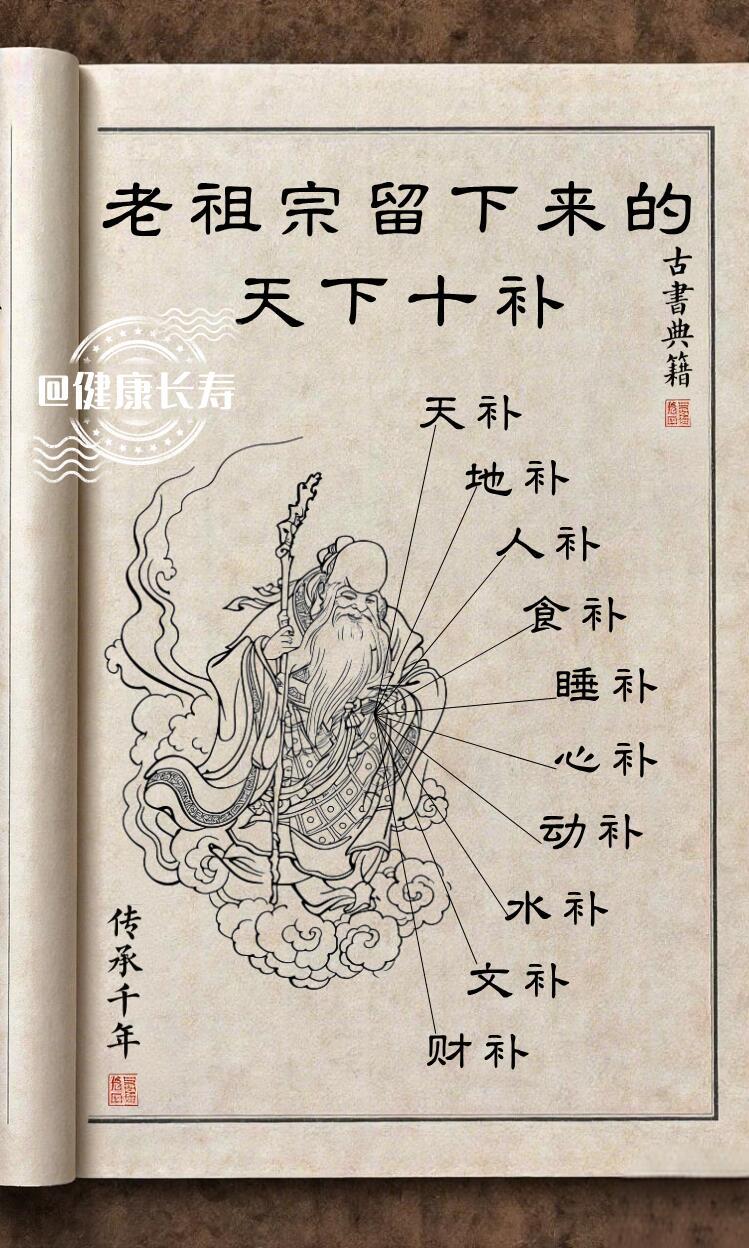 老祖宗留下来的
天下十补
古書典籍
@健康长寿
天补
地补
人补
食补
睡补
心补
动补
水补
文补
财补
传承千年